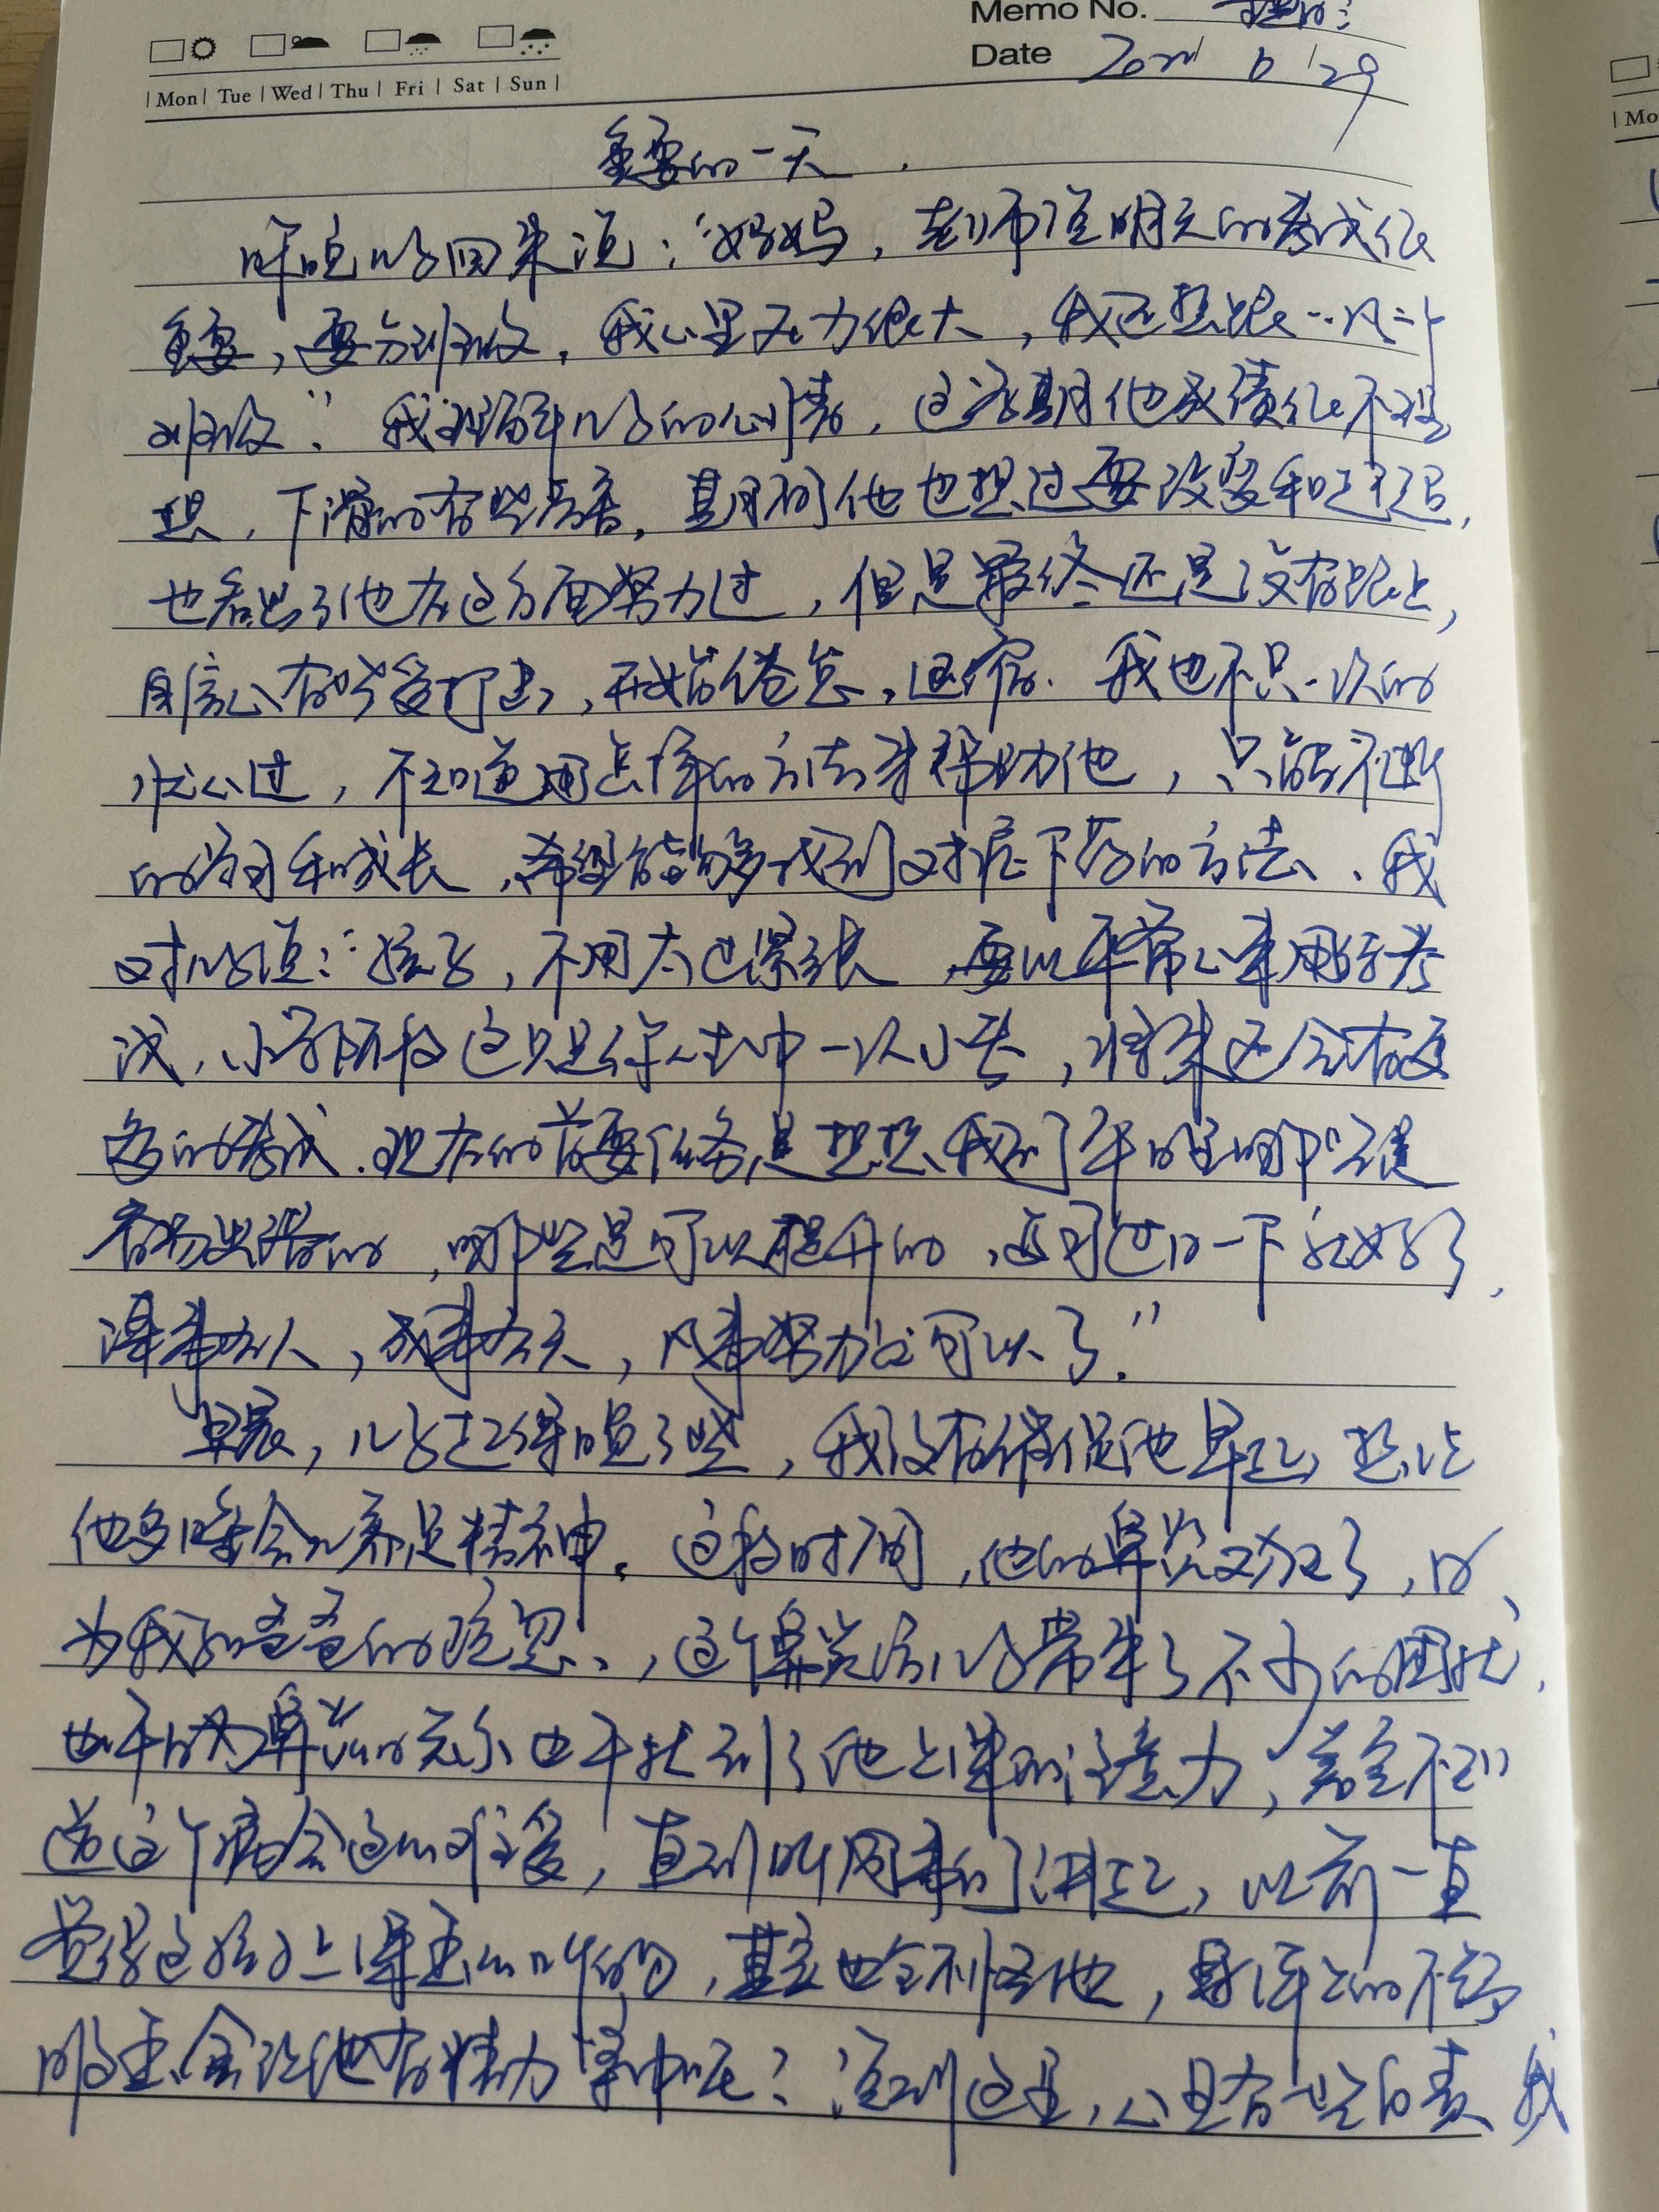 Memo No.
Date 29
Mon Tue Wed Thu Fri Sat Sun
Mo
重要的一天
昨晚儿子回来说：“妈妈，老师说明天的考试很
重要，要分班级，我心里压力很大，我还想跟
班级”。我理解儿子的心情，这学期他成绩很不理
想，下滑的有些厉害，期间他也想过要改变和追赶，
也看出了他在这方面努力过，但是最终还是没有跟上，
自信心有些受打击，开始倦怠，退缩。我也不只一次的
担心过，不知道用怎样的方法来帮助他，只能不断
的学习和成长，希望能够找到对症下药的方法、我
对儿子说：“孩子，不用太过紧张，要以平常心来用于考
试，小学阶段这只是你人生中一次小考，将来还会有更
多的考试，现在的首要任务是想想我们平时哪些是
容易出错的，哪些是可以提升的，复习过一下就好了，
谋事在人，成事在天，凡事努力过可以了。”
早晨，儿子起得晚了些，我没有催促他早起，想让
他多睡会儿养足精神。这段时间，他的鼻炎又犯了，因
为我和爸爸的疏忽，这个鼻炎给儿子带来了不少的困扰，
也干扰到了他上课的注意力，完全不知
道这个病会这么难受，直到听同事们讲起，以前一直
觉得这孩子上课，其实也全不怪他，身体上的不舒
服怎会让他有精力集中呢？说到这里，心里有一些自责，我